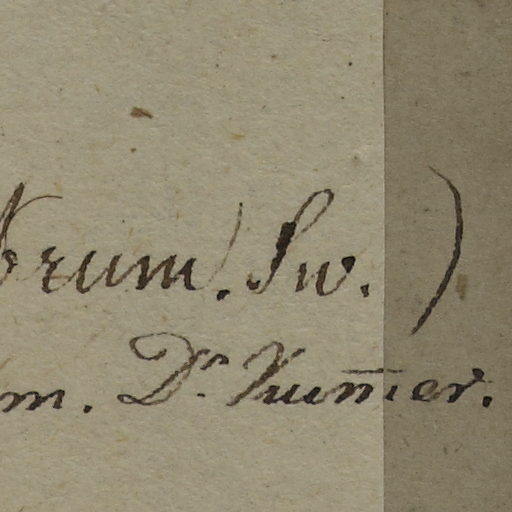 brum. Sw. )
m. Dr Kum̅er.